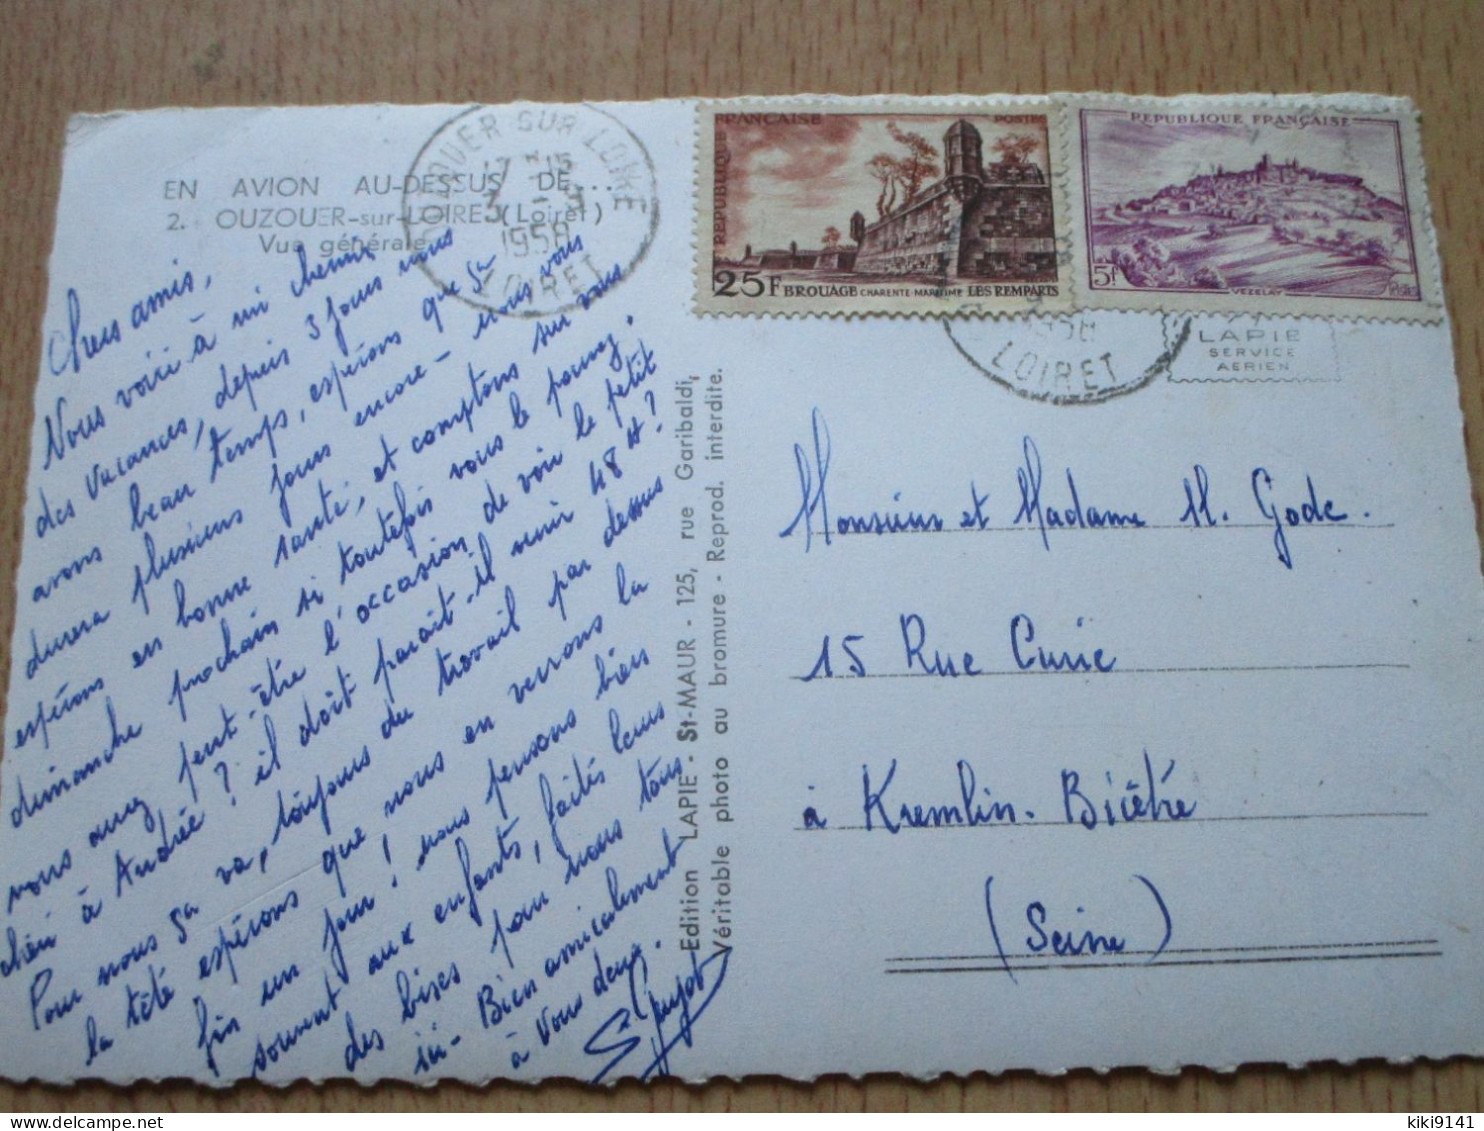 EN AVION AU-DESSUS DE...
2. OUZOUER-sur-LOIRE (Loiret)
Vue générale
OUZOUER SUR LOIRE
1958
LOIRET
Chers amis,
Nous voici à mi chemin
des vacances, depuis 3 jours nous
avons beau temps, espérons que sa
durera plusieurs jours encore - nous vous
espérons en bonne santé, et comptons sur vous
dimanche prochain si toutefois vous le pouvez.
vous aurez peut-être l'occasion de voir le petit
chéri à Andrée ? il doit parait-il venir 48 H ?
Pour nous sa va, toujours du travail par dessus
la tête espérons que nous en verrons la
fin un jour ! nous pensons bien
souvent aux enfants, faites leurs
des bises pour nous tous
ici - Bien amicalement
à vous deux.
Edition LAPIE - St-MAUR - 125, rue Garibaldi,
Véritable photo au bromure - Reprod. interdite.
REPUBLIQUE FRANÇAISE POSTES
25F BROUAGE CHARENTE-MARITIME LES REMPARTS
REPUBLIQUE FRANÇAISE
5f VEZELAY
1958
LOIRET
LAPIE
SERVICE
AERIEN
Monsieur et Madame M. Gode.
15 Rue Curie
à Kremlin-Bicêtre
(Seine)
kiki9141